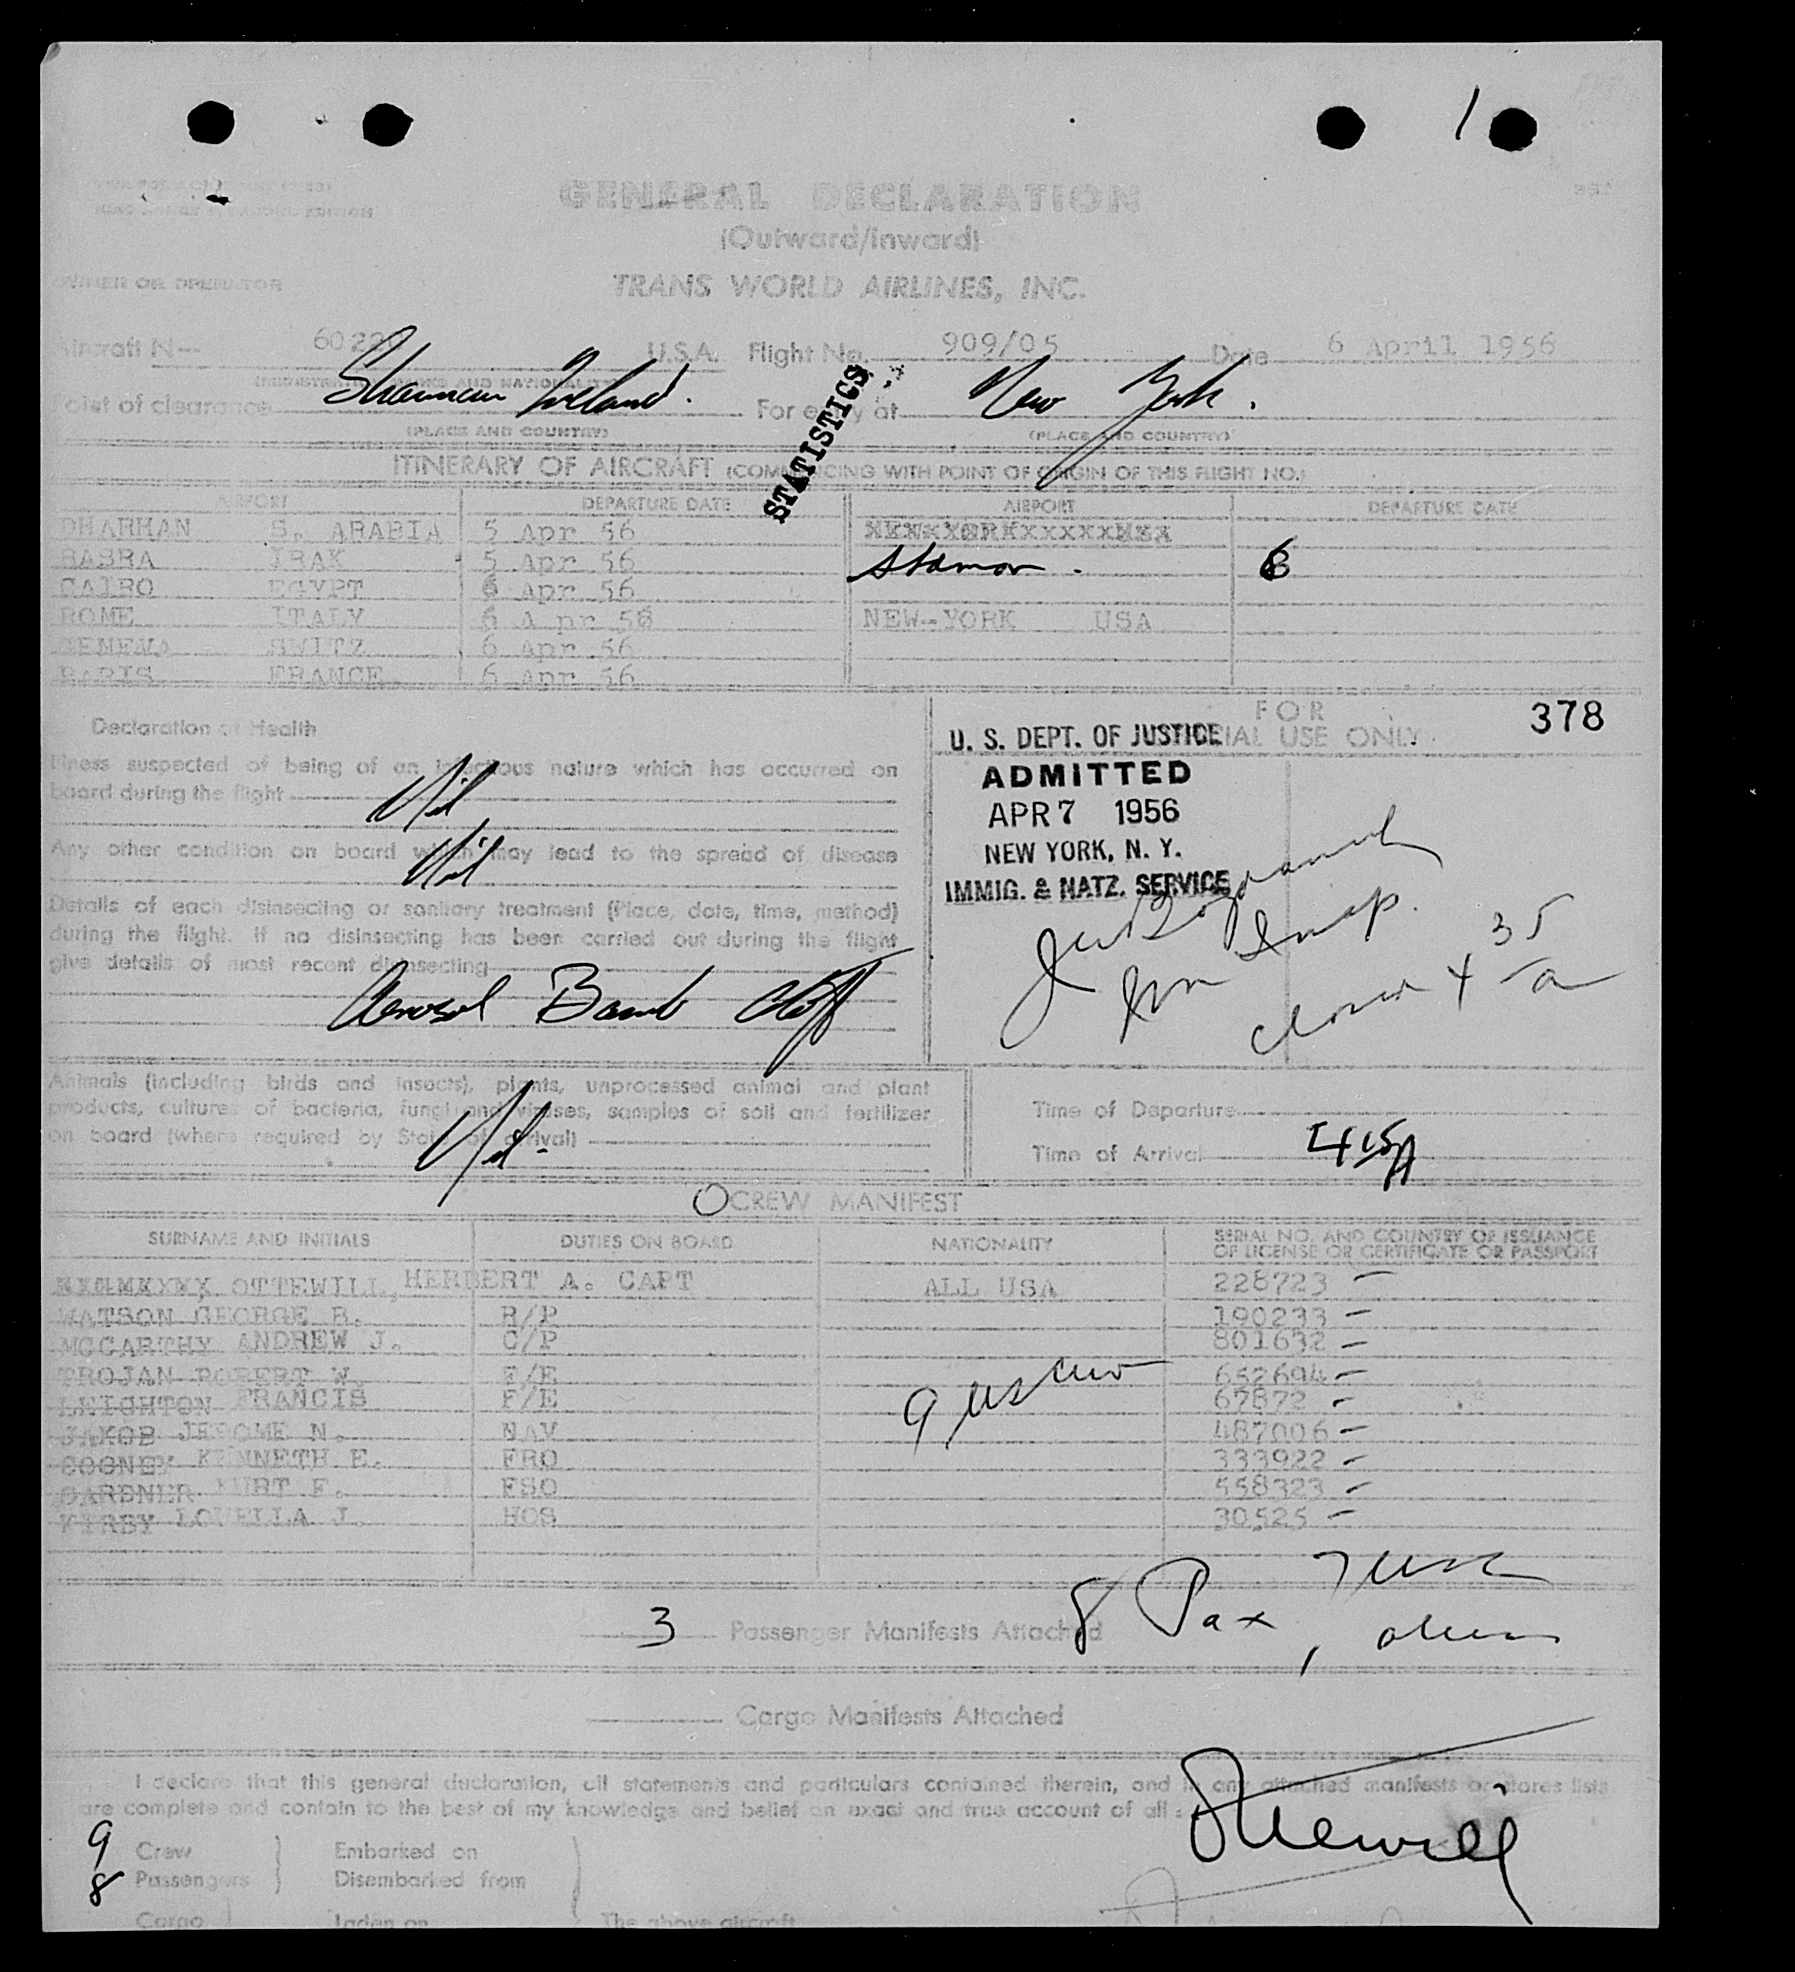 GENERAL DECLARATION
(Outward/Inward)
OWNER OR OPERATOR
TRANS WORLD AIRLINES, INC.
Aircraft N— 60220 U.S.A. Flight No. 909/05 Date 6 April 1956
Point of clearance Shannon Ireland. For entry at New York.
(PLACE AND COUNTRY) (PLACE AND COUNTRY)
STATISTICS
ITINERARY OF AIRCRAFT (COMMENCING WITH POINT OF ORIGIN OF THIS FLIGHT NO.)
AIRPORT DEPARTURE DATE AIRPORT DEPARTURE DATE
DHARHAN S. ARABIA 5 Apr 56
BASRA IRAK 5 Apr 56 6
CAIRO EGYPT 6 Apr 56
ROME ITALY 6 A pr 56 NEW-YORK USA
GENEVA SWITZ 6 Apr 56
PARIS FRANCE 6 Apr 56
Declaration of Health
Illness suspected of being of an infectious nature which has occurred on
board during the flight Nil
Any other condition on board which may lead to the spread of disease
Nil
Details of each disinsecting or sanitary treatment (Place, date, time, method)
during the flight. If no disinsecting has been carried out during the flight
give details of most recent disinsecting
Aerosol Bomb
FOR 378
OFFICIAL USE ONLY
U. S. DEPT. OF JUSTICE
ADMITTED
APR 7 1956
NEW YORK, N. Y.
IMMIG. & NATZ. SERVICE
Imm Insp.
4 35 a
Animals (including birds and insects), plants, unprocessed animal and plant
products, cultures of bacteria, fungi and viruses, samples of soil and fertilizer
on board (where required by State of arrival) Nil
Time of Departure
Time of Arrival 415A
CREW MANIFEST
SURNAME AND INITIALS DUTIES ON BOARD NATIONALITY SERIAL NO. AND COUNTRY OF ISSUANCE
OF LICENSE OR CERTIFICATE OR PASSPORT
OTTEWILL, HERBERT A. CAPT ALL USA 228723 —
WATSON GEORGE B. R/P 190233 —
MCCARTHY ANDREW J. C/P 801632 —
TROJAN ROBERT W. F/E 652694 —
LEIGHTON FRANCIS F/E 67872 —
JAKOB JEROME N. NAV 487006 —
COONEY KENNETH E. FRO 333922 —
GARDNER KURT F. FSO 558323 —
KIRBY LOUELLA J. HOS 30525 —
9 US Crew
3 Passenger Manifests Attached
8 Pax, 7 USC
1 alien
Cargo Manifests Attached
I declare that this general declaration, all statements and particulars contained therein, and in any attached manifests or stores lists
are complete and contain to the best of my knowledge and belief an exact and true account of all:
Ottewill
9 Crew Embarked on
8 Passengers Disembarked from
Cargo Laden on The above aircraft